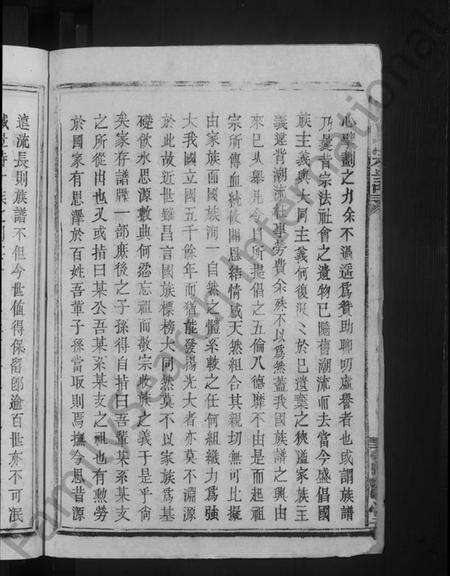 心擘劃之力余不過遥爲贊助聊叨虛譽者也或謂族譜
乃曩昔宗法社會之遺物已隨舊潮流而去當今盛倡國
族主義與大同主義何復汲汲於已遺棄之狹隘家族主
義遂昔潮流重勞費余殊不以爲然蓋我國族譜之興由
來已久舉凡今日所提倡之五倫八德靡不由是而起祖
宗所傳血統攸關恩結情感天然組合其親切無可比擬
由家族而國族洵一自然之體系較之任何組織力爲強
大我國立國五千餘年而猶能發揚光大者亦莫不淵源
於此故近世雖昌言國族標榜大同然莫不以家族爲基
礎飲水思源數典何容忘祖而敬宗收族之義于是乎尚
矣家存譜牒一部庶後之子孫得自持曰吾輩某系某支
之所從出也又或指曰某公吾某系某支之祖也有勲勞
於國家有恩澤於百姓吾輩子孫當取則焉撫今思昔源
遠流長則族譜不但今世值得保留卽逾百世亦不可泯
FamilySearch International